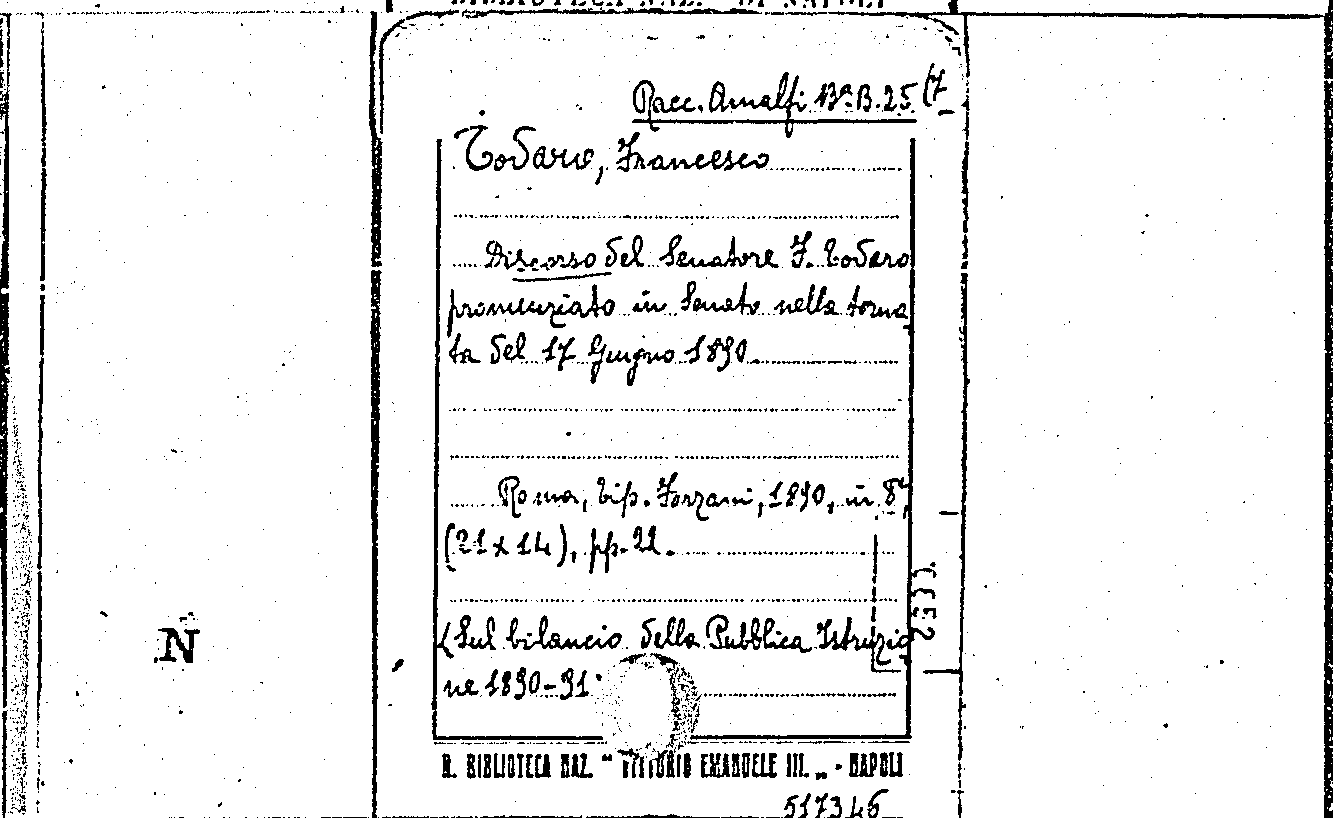 BIBLIOTECA NAZ. DI NAPOLI
Racc. Amalfi Bª B. 25 (7
Todaro, Francesco
Discorso del Senatore F. Todaro
pronunziato in Senato nella torna
ta del 17 Giugno 1890.
Roma, tip. Forzani, 1890, in 8°,
(21 x 14), pp. 22.
(Sul bilancio della Pubblica Istruzio
ne 1890-91
N
R. BIBLIOTECA NAZ. " VITTORIO EMANUELE III. „ - NAPOLI
517346